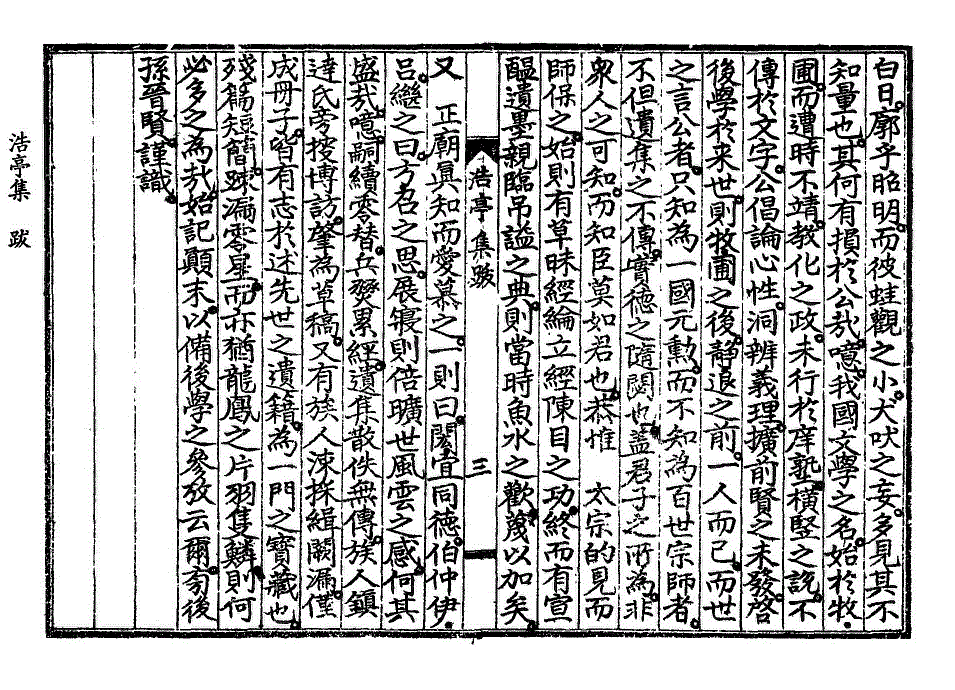 白日。廓乎昭明。而彼蛙觀之小。犬吠之妄。多見其不
知量也。其何有損於公哉。噫。我國文學之名。始於牧
圃。而遭時不靖。敎化之政。未行於庠塾。橫竪之說。不
傳於文字。公倡論心性。洞辨義理。擴前賢之未發。啓
後學於來世。則牧圃之後。靜退之前。一人而已。而世
之言公者。只知為一國元勳。而不知為百世宗師者。
不但遺集之不傳。實德之隨閟也。盖君子之所為。非
衆人之可知。而知臣莫如君也。恭惟 太宗的見而
師保之。始則有草昧經綸立經陳目之功。終而有宣
醞遺墨親臨吊謚之典。則當時魚水之歡。蔑以加矣。
浩亭集跋 三
又 正廟眞知而愛慕之。一則曰。閎宜同德。伯仲伊
呂。繼之曰。方召之思。展寢則倍曠世風雲之感。何其
盛哉。噫。嗣續零替。兵燹累經。遺集散佚無傳。族人鎭
達氏旁搜博訪。肇為草稿。又有族人涑採緝闕漏。僅
成冊子。咱有志於述先世之遺籍。為一門之寶藏也。
殘篇短簡。踈漏零星。而亦猶龍鳳之片羽隻鱗。則何
必多之為哉。始記顚末。以備後學之參攷云爾。旁後
孫晉賢。謹識。
浩亭集 跋